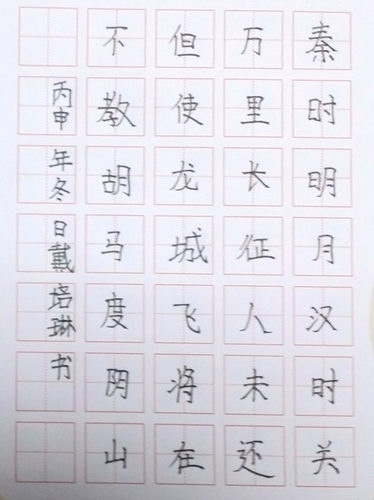 秦时明月汉时关
万里长征人未还
但使龙城飞将在
不教胡马度阴山
丙申年冬日戴培琳书